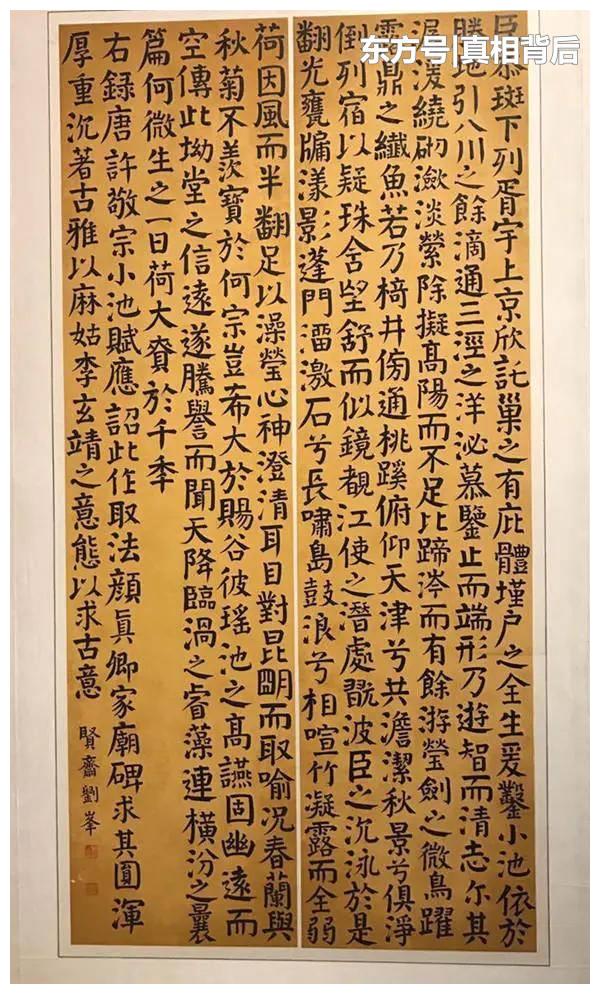 东方号|真相背后
臣恭斑下列胥宇上京欣託巢之有庇體墐户之全生爰鑿小池依於
勝地引八川之餘滴通三涇之洋泌慕鑒止而端形乃遊智而清志尔其
湲繞砌瀲淡縈除擬高陽而不足比蹄涔而有餘游瑩劍之微鳥躍
雷鼎之纖魚若乃井傍通桃蹊俯仰天津兮共澹潔秋景兮俱淨
倒列宿以疑珠舍望舒而似鏡覩江使之潛處翫波臣之沉泳於是
翻光甕牖漾影蓬門澑激石兮長嘯島鼓浪兮相喧竹凝露而全弱
荷因風而半翻足以澡瑩心神澄清耳目對昆明而取喻況春蘭與
秋菊不羨寶於何宗豈布大於賜谷彼瑤池之高讌固幽遠而
空傳此坳堂之信遠遂騰譽而聞天降臨渦之睿藻連橫汾之曩
篇何微生之一日荷大賚於千秊
右録唐許敬宗小池賦應詔此作取法顔真卿家廟碑求其圓渾
厚重沉著古雅以麻姑李玄靖之意態以求古意
賢齋劉峯